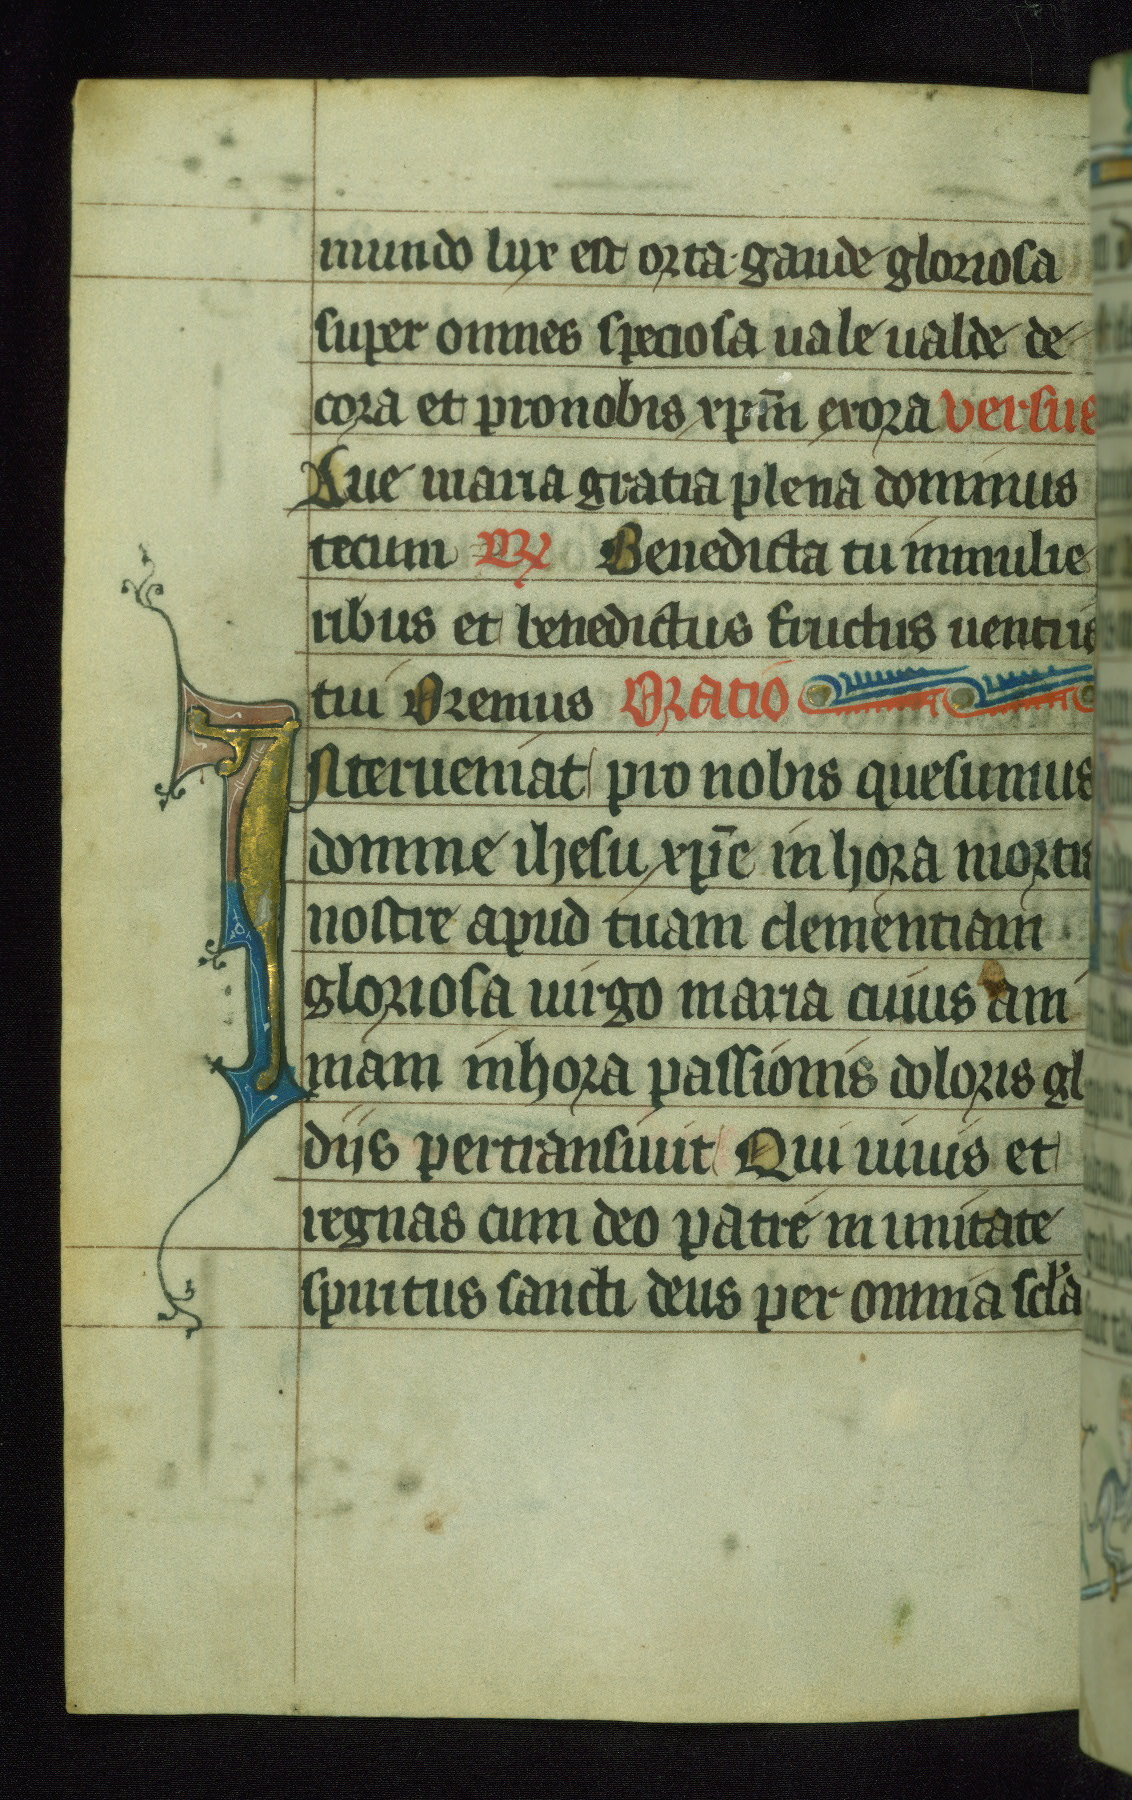 mundo lux est orta·gaude gloriosa
super omnes speciosa uale ualde de
cora et pro nobis xp̄m exora versus
Aue maria gratia plena dominus
tecum Rx Benedicta tu in mulie
ribus et benedictus fructus uentris
tui Oremus Oratio
INterueniat pro nobis quesumus
domine ihesu xp̄e in hora mortis
nostre apud tuam clementiam
gloriosa uirgo maria cuius ani
mam in hora passionis doloris gla
dijs pertransiuit Qui uiuis et
regnas cum deo patre in unitate
spiritus sancti deus per omnia scl'a